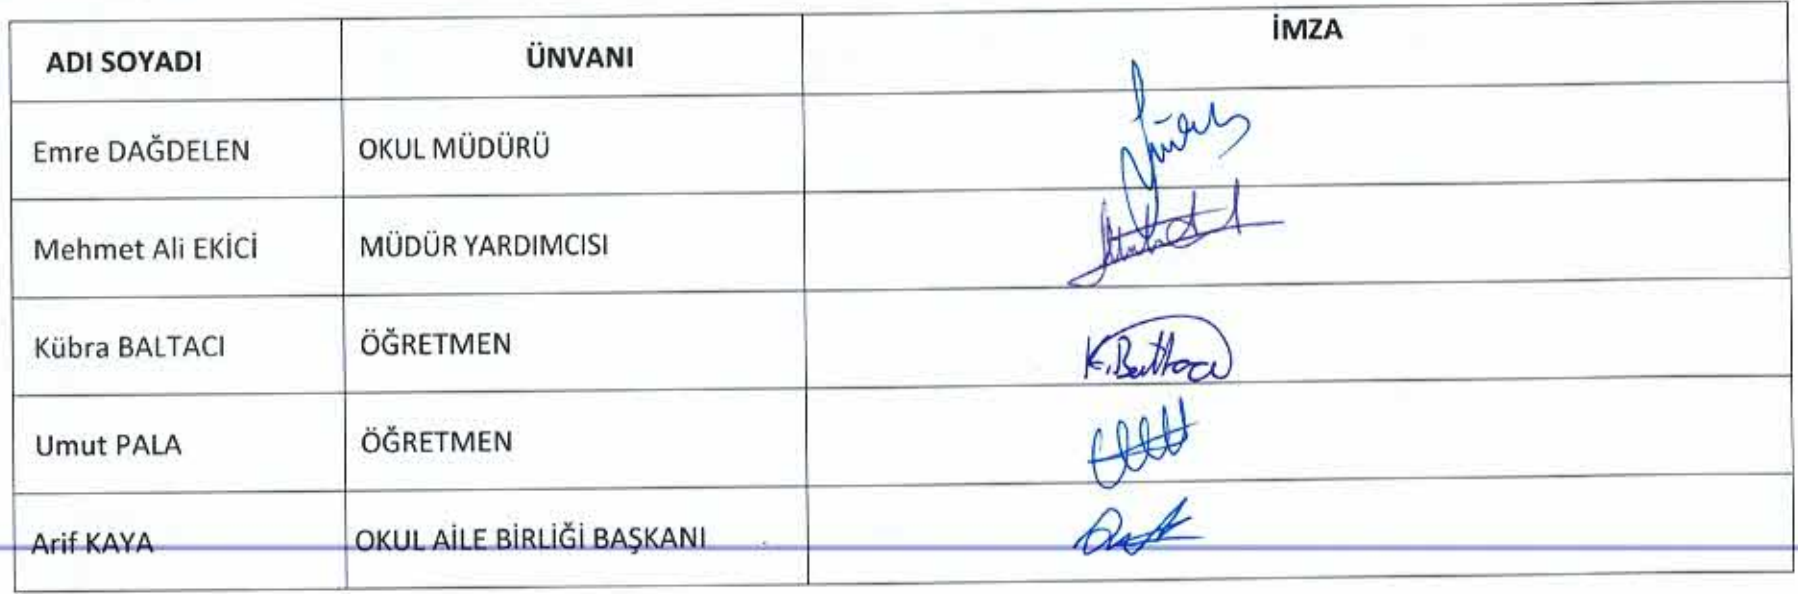 ADI SOYADI ÜNVANI İMZA
Emre DAĞDELEN OKUL MÜDÜRÜ
Mehmet Ali EKİCİ MÜDÜR YARDIMCISI
Kübra BALTACI ÖĞRETMEN K. Baltacı
Umut PALA ÖĞRETMEN
Arif KAYA OKUL AİLE BİRLİĞİ BAŞKANI